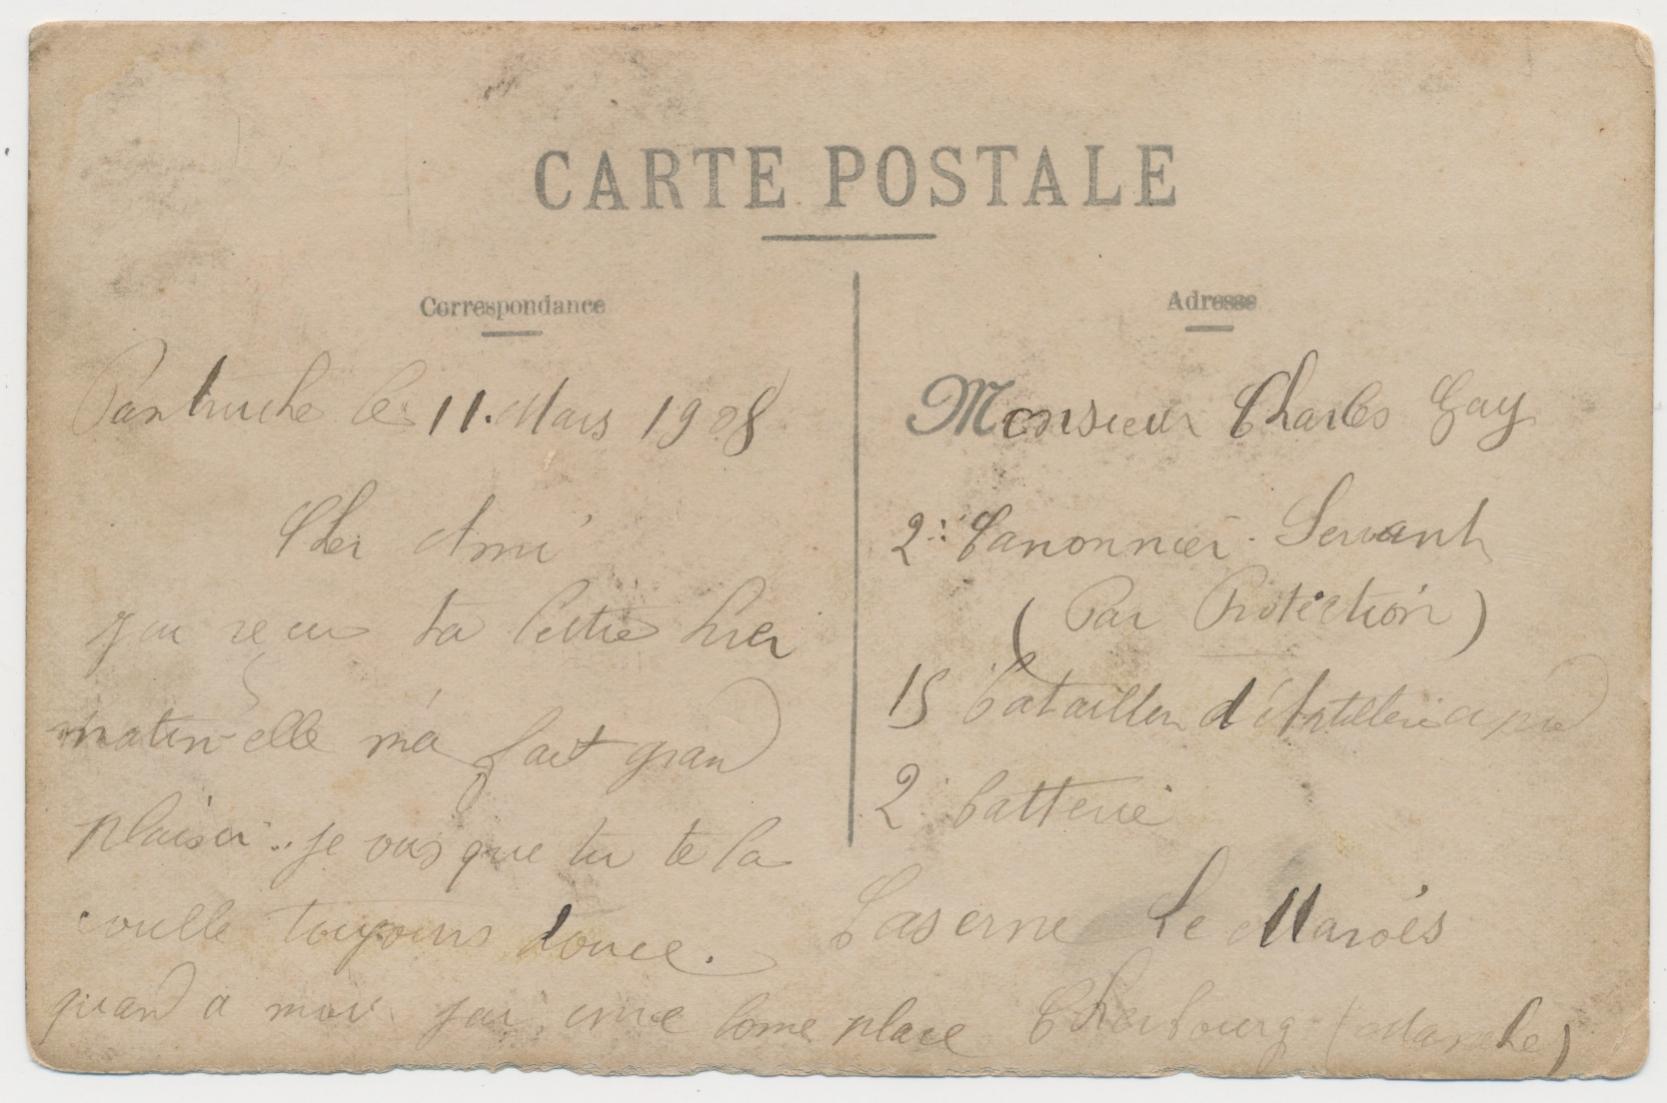 CARTE POSTALE
Correspondance
Pantruche le 11 Mars 1908
Cher Ami
j'ai reçu ta lettre hier
matin elle m'a fait grand
plaisir.. je vois que tu te la
coulle toujours douce.
quand a moi j'ai une bonne place
Adresse
Monsieur Charles Gay
2e Canonnier Servant
(Par Protection)
15 bataillon d'Artillerie a pied
2e batterie
Caserne Le Maroës
Cherbourg (Manche)